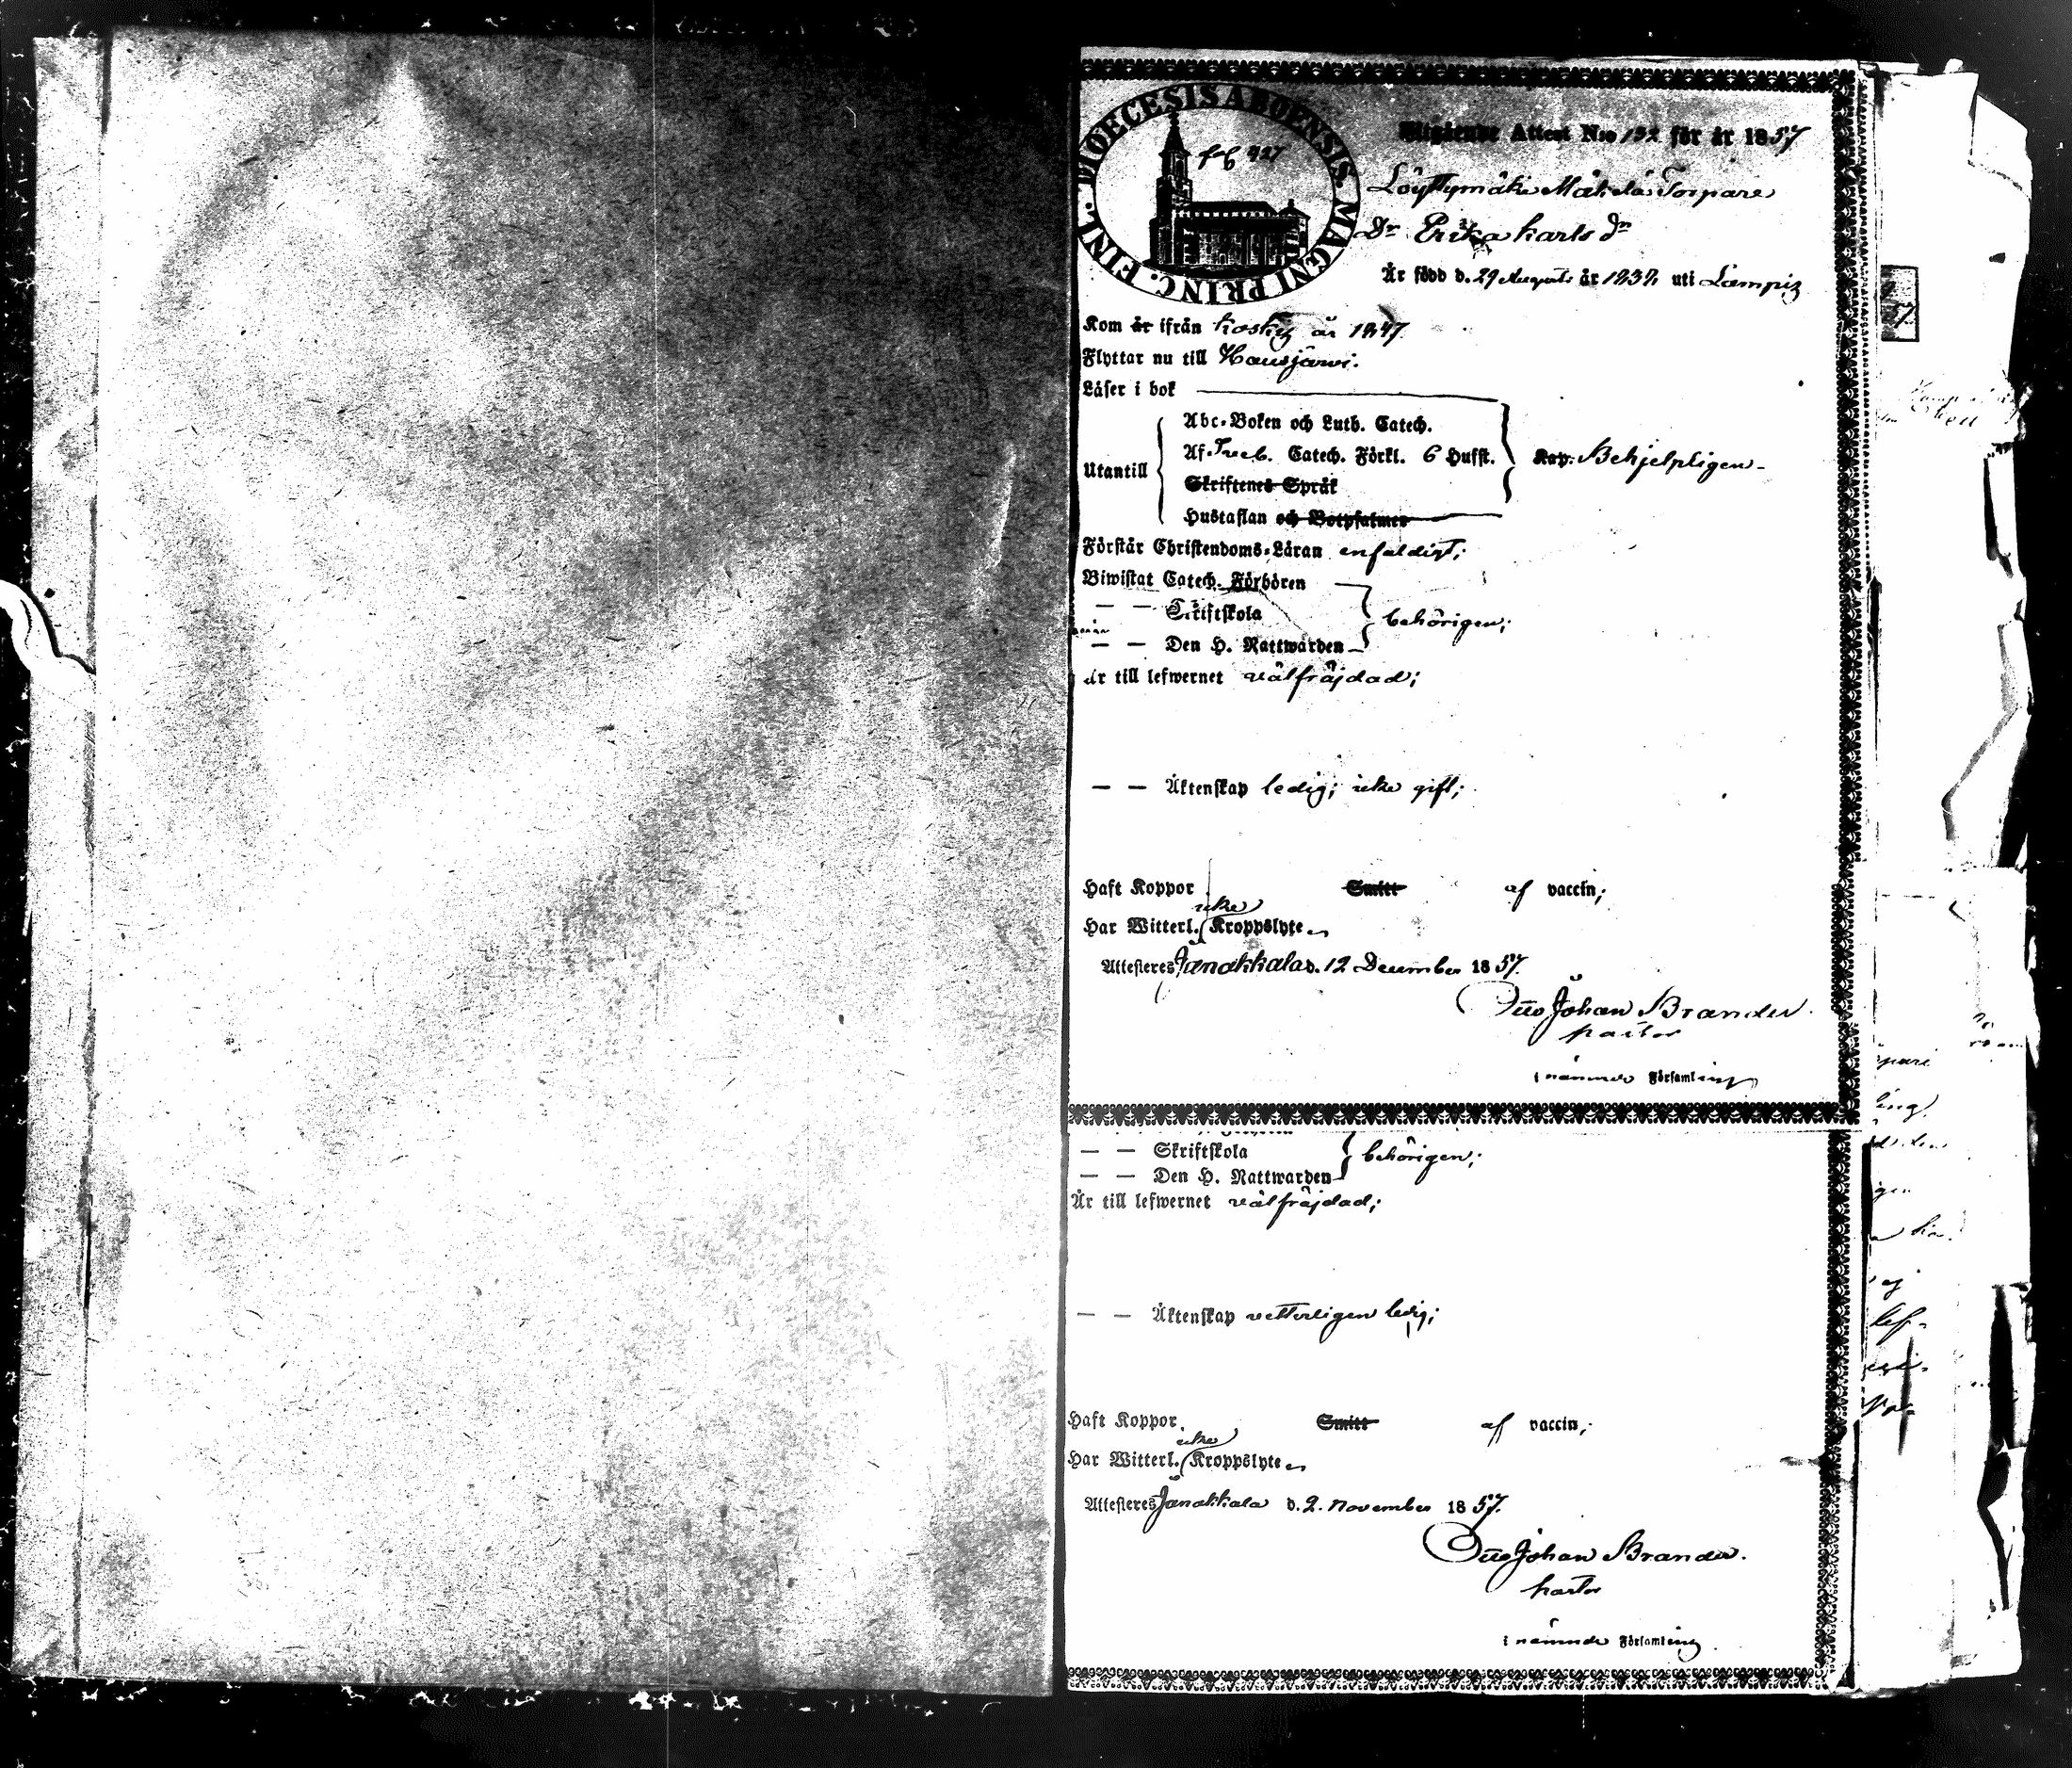 DIOECESIS ABOENSIS. MAGNI PRINC. FINL.
Utgående Attest N:o 132 för år 1857
Löyttymäki Mäkelä Torpare
Dr Erika Karls dr
Är född d. 29 Augusti år 1837 uti Lampis
Kom år ifrån Koskis år 1847.
Flyttar nu till Hausjärvi.
Läser i bok
Abc-Boken och Luth. Catech.
Af Sveb. Catech. Förkl. 6 Hufst. Kap. Behjelpligen
Utantill
Skriftenes Språk
Hustaflan och Botpsalmer
Förstår Christendoms-Läran enfaldigt;
Biwistat Catech. Förhören
— — Skriftskola behörigen;
— — Den H. Nattwarden
Är till lefwernet välfräjdad;
— — Äktenskap ledig; icke gift;
Haft Koppor Smitt af vaccin;
icke
Har Witterl. Kroppslyte
Attesteres Janakkala d. 12 December 1857.
Otto Johan Brander.
pastor
i nämnde Församling
— — Skriftskola behörigen;
— — Den H. Nattwarden
Är till lefwernet välfräjdad;
— — Äktenskap vetterligen ledig;
Haft Koppor Smitt af vaccin;
icke
Har Witterl. Kroppslyte
Attesteres Janakkala d. 2. November 1857.
Otto Johan Brander.
pastor
i nämnde Församling